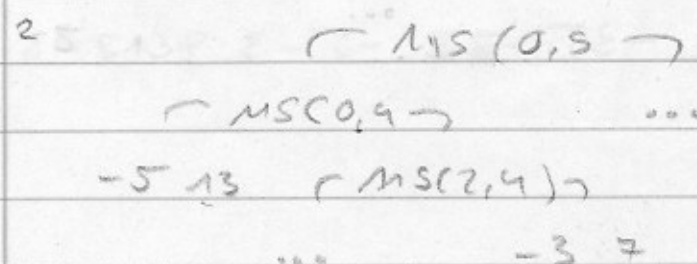 2 ⌐ MS(0,5 ¬
⌐ MS(0,4 ¬ ...
-5 13 ⌐ MS(2,4) ¬
... -3 7